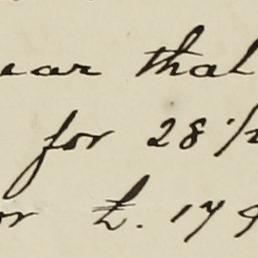 ear that
for 28 1/2
or £. 179